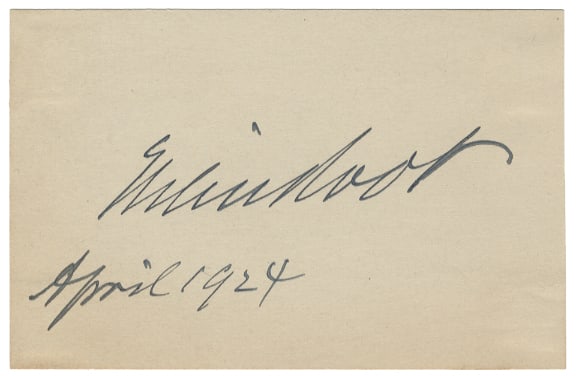 Elihu Root
April 1924